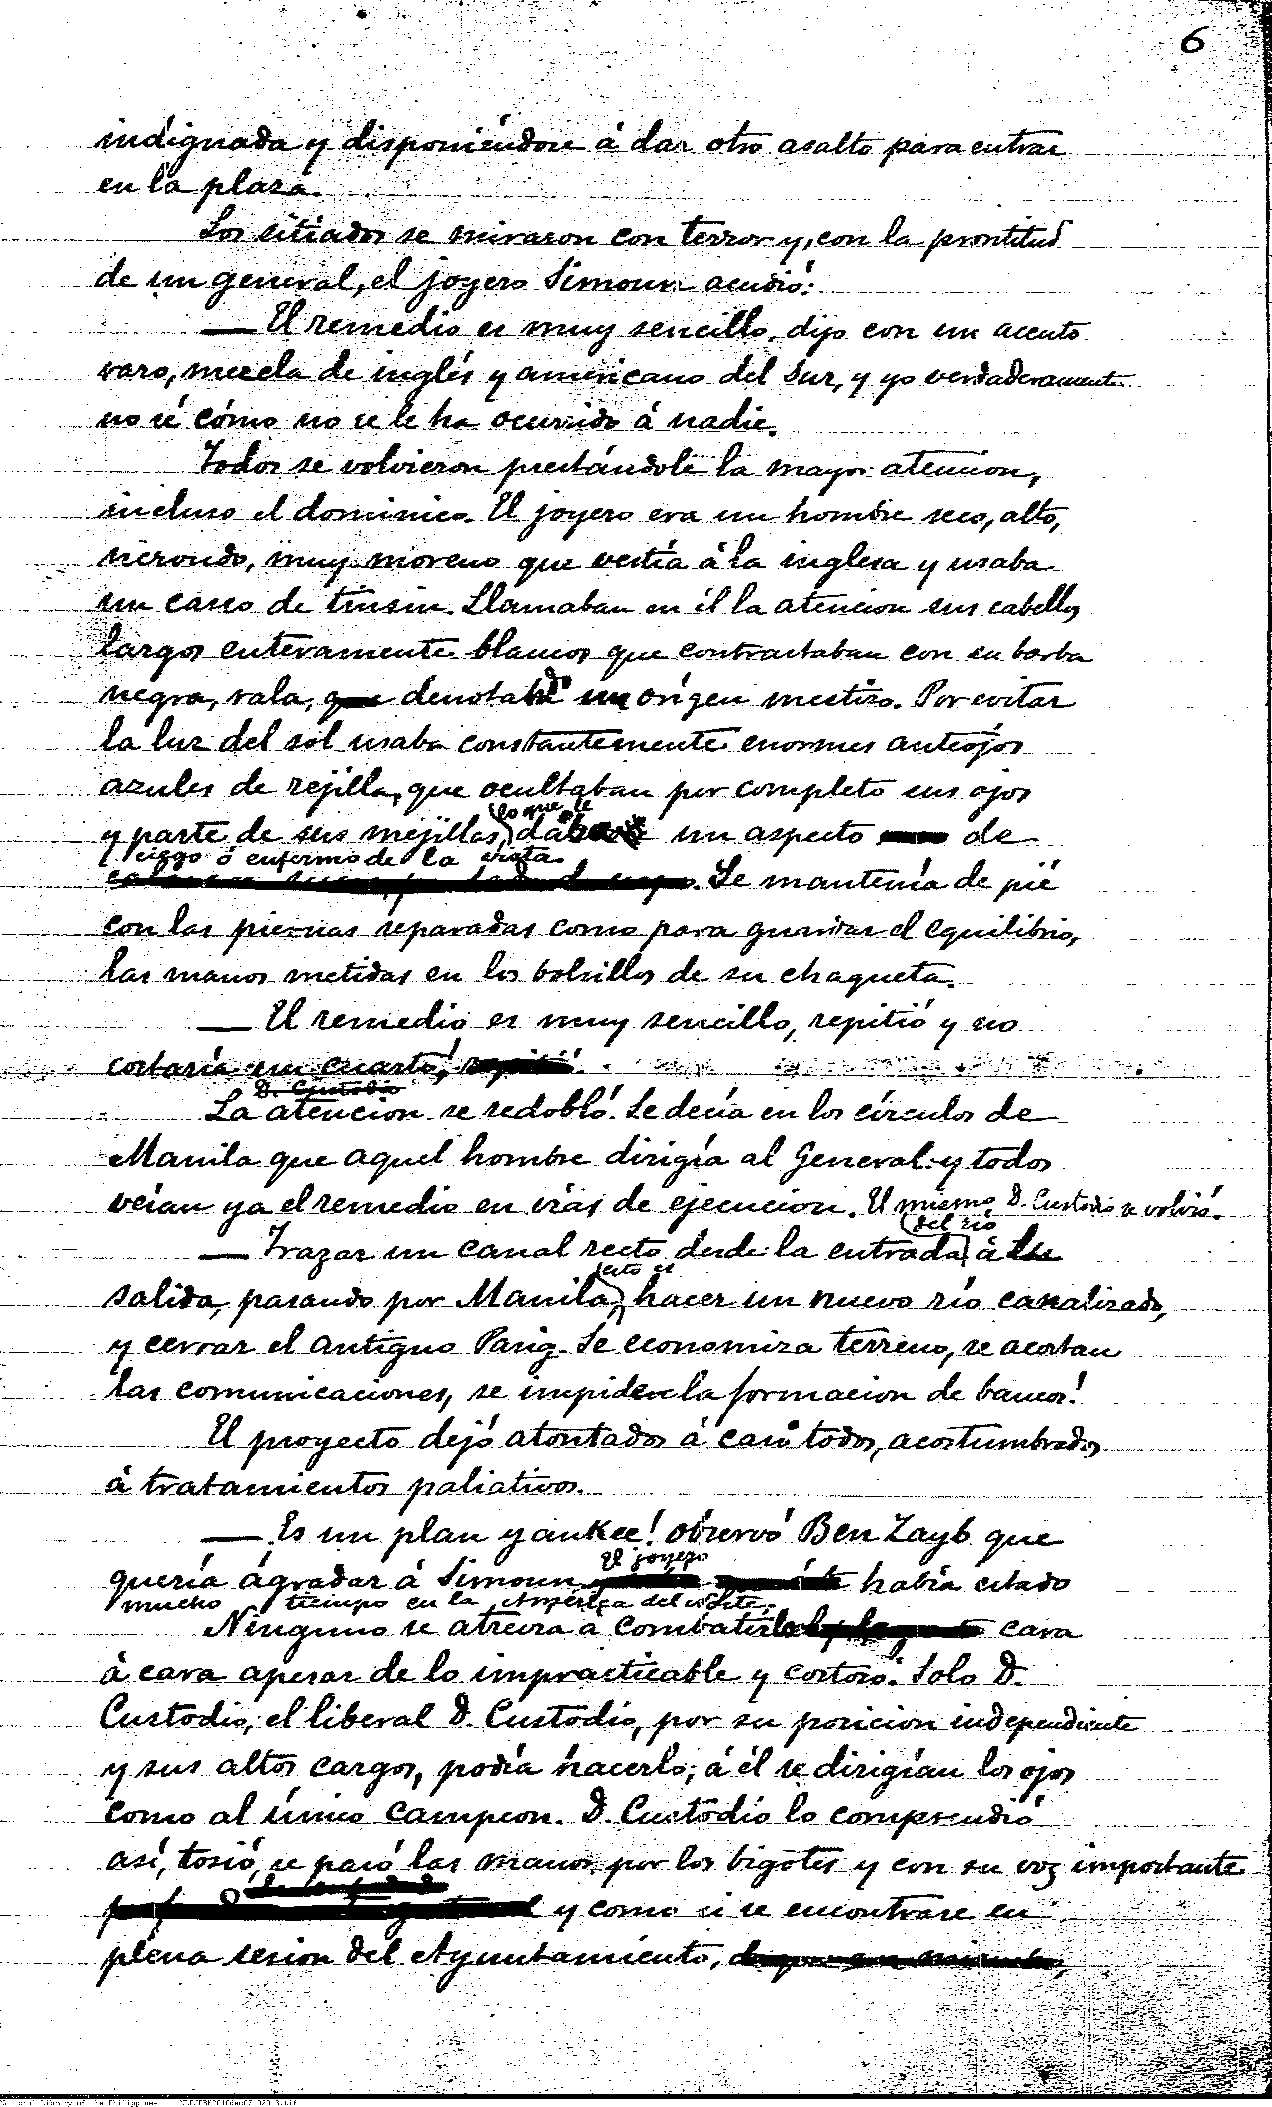 6
indignada y disponiéndose á dar otro asalto para entrar
en la plaza.
Los sitiados se miraron con terror y, con la prontitud
de un general, el joyero Simoun acudió:
— El remedio es muy sencillo, dijo con un acento
raro, mezcla de inglés y americano del Sur, y yo verdaderamente
no sé cómo no se le ha ocurrido á nadie.
Todos se volvieron prestándole la mayor atencion,
incluso el dominico. El joyero era un hombre seco, alto,
nervudo, muy moreno que vestía á la inglesa y usaba
un casco de tinsin. Llamaban en él la atencion sus cabellos
largos enteramente blancos que contrastaban con su barba
negra, rala, que denotando un orígen mestizo. Por evitar
la luz del sol usaba constantemente enormes anteojos
azules de rejilla, que ocultaban por completo sus ojos
lo que le
y parte de sus mejillas, daba un aspecto de
ciego ó enfermo de la vista.
Se mantenía de pié
con las piernas separadas como para guardar el equilibrio,
las manos metidas en los bolsillos de su chaqueta.
— El remedio es muy sencillo, repitió y no
costaría un cuarto! repitió.
D. Custodio
La atencion se redobló. Se decía en los círculos de
Manila que aquel hombre dirigía al General y todos
veían ya el remedio en vías de ejecucion. El mismo D. Custodio se volvió.
del río
— Trazar un canal recto desde la entrada á su
esto es
salida, pasando por Manila, hacer un nuevo río canalizado,
y cerrar el antiguo Pasig. Se economiza terreno, se acortan
las comunicaciones, se impide la formacion de bancos!
El proyecto dejó atontados á casi todos, acostumbrados
á tratamientos paliativos.
— Es un plan yankee! observó Ben Zayb que
El joyero
quería agradar á Simoun había estado
mucho tiempo en la América del Norte.
Ninguno se atrevía á combatirlo cara
á cara apesar de lo impracticable y costoso. Solo D.
Custodio, el liberal D. Custodio, por su posicion independiente
y sus altos cargos, podía hacerlo; á él se dirigían los ojos
como al único campeon. D. Custodio lo comprendió
así, tosió, se pasó las manos por los bigotes y con su voz importante
y como si se encontrase en
plena sesion del Ayuntamiento,